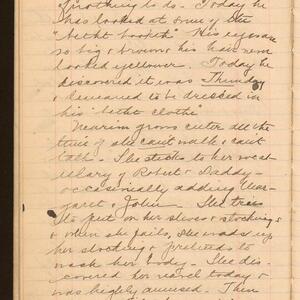 nothing to do. Today he
has looked at some of the
"bethit books" His eyes are
so big & brown & his hair never
looked yellower. Today he
discovered it was Thursday
& demanded to be dressed in
his "bethit clothes"
Nearim grows cuter all the
time if she can't walk & can't
talk. She sticks to her vocab-
ulary of Robert & Daddy -
occasionally adding Mar-
garet & John. She tries
to put on her shoes & stockings &
when she fails, she wads up
her stocking & pretends to
wash her body. She dis-
covered her navel today &
was highly amused. Then